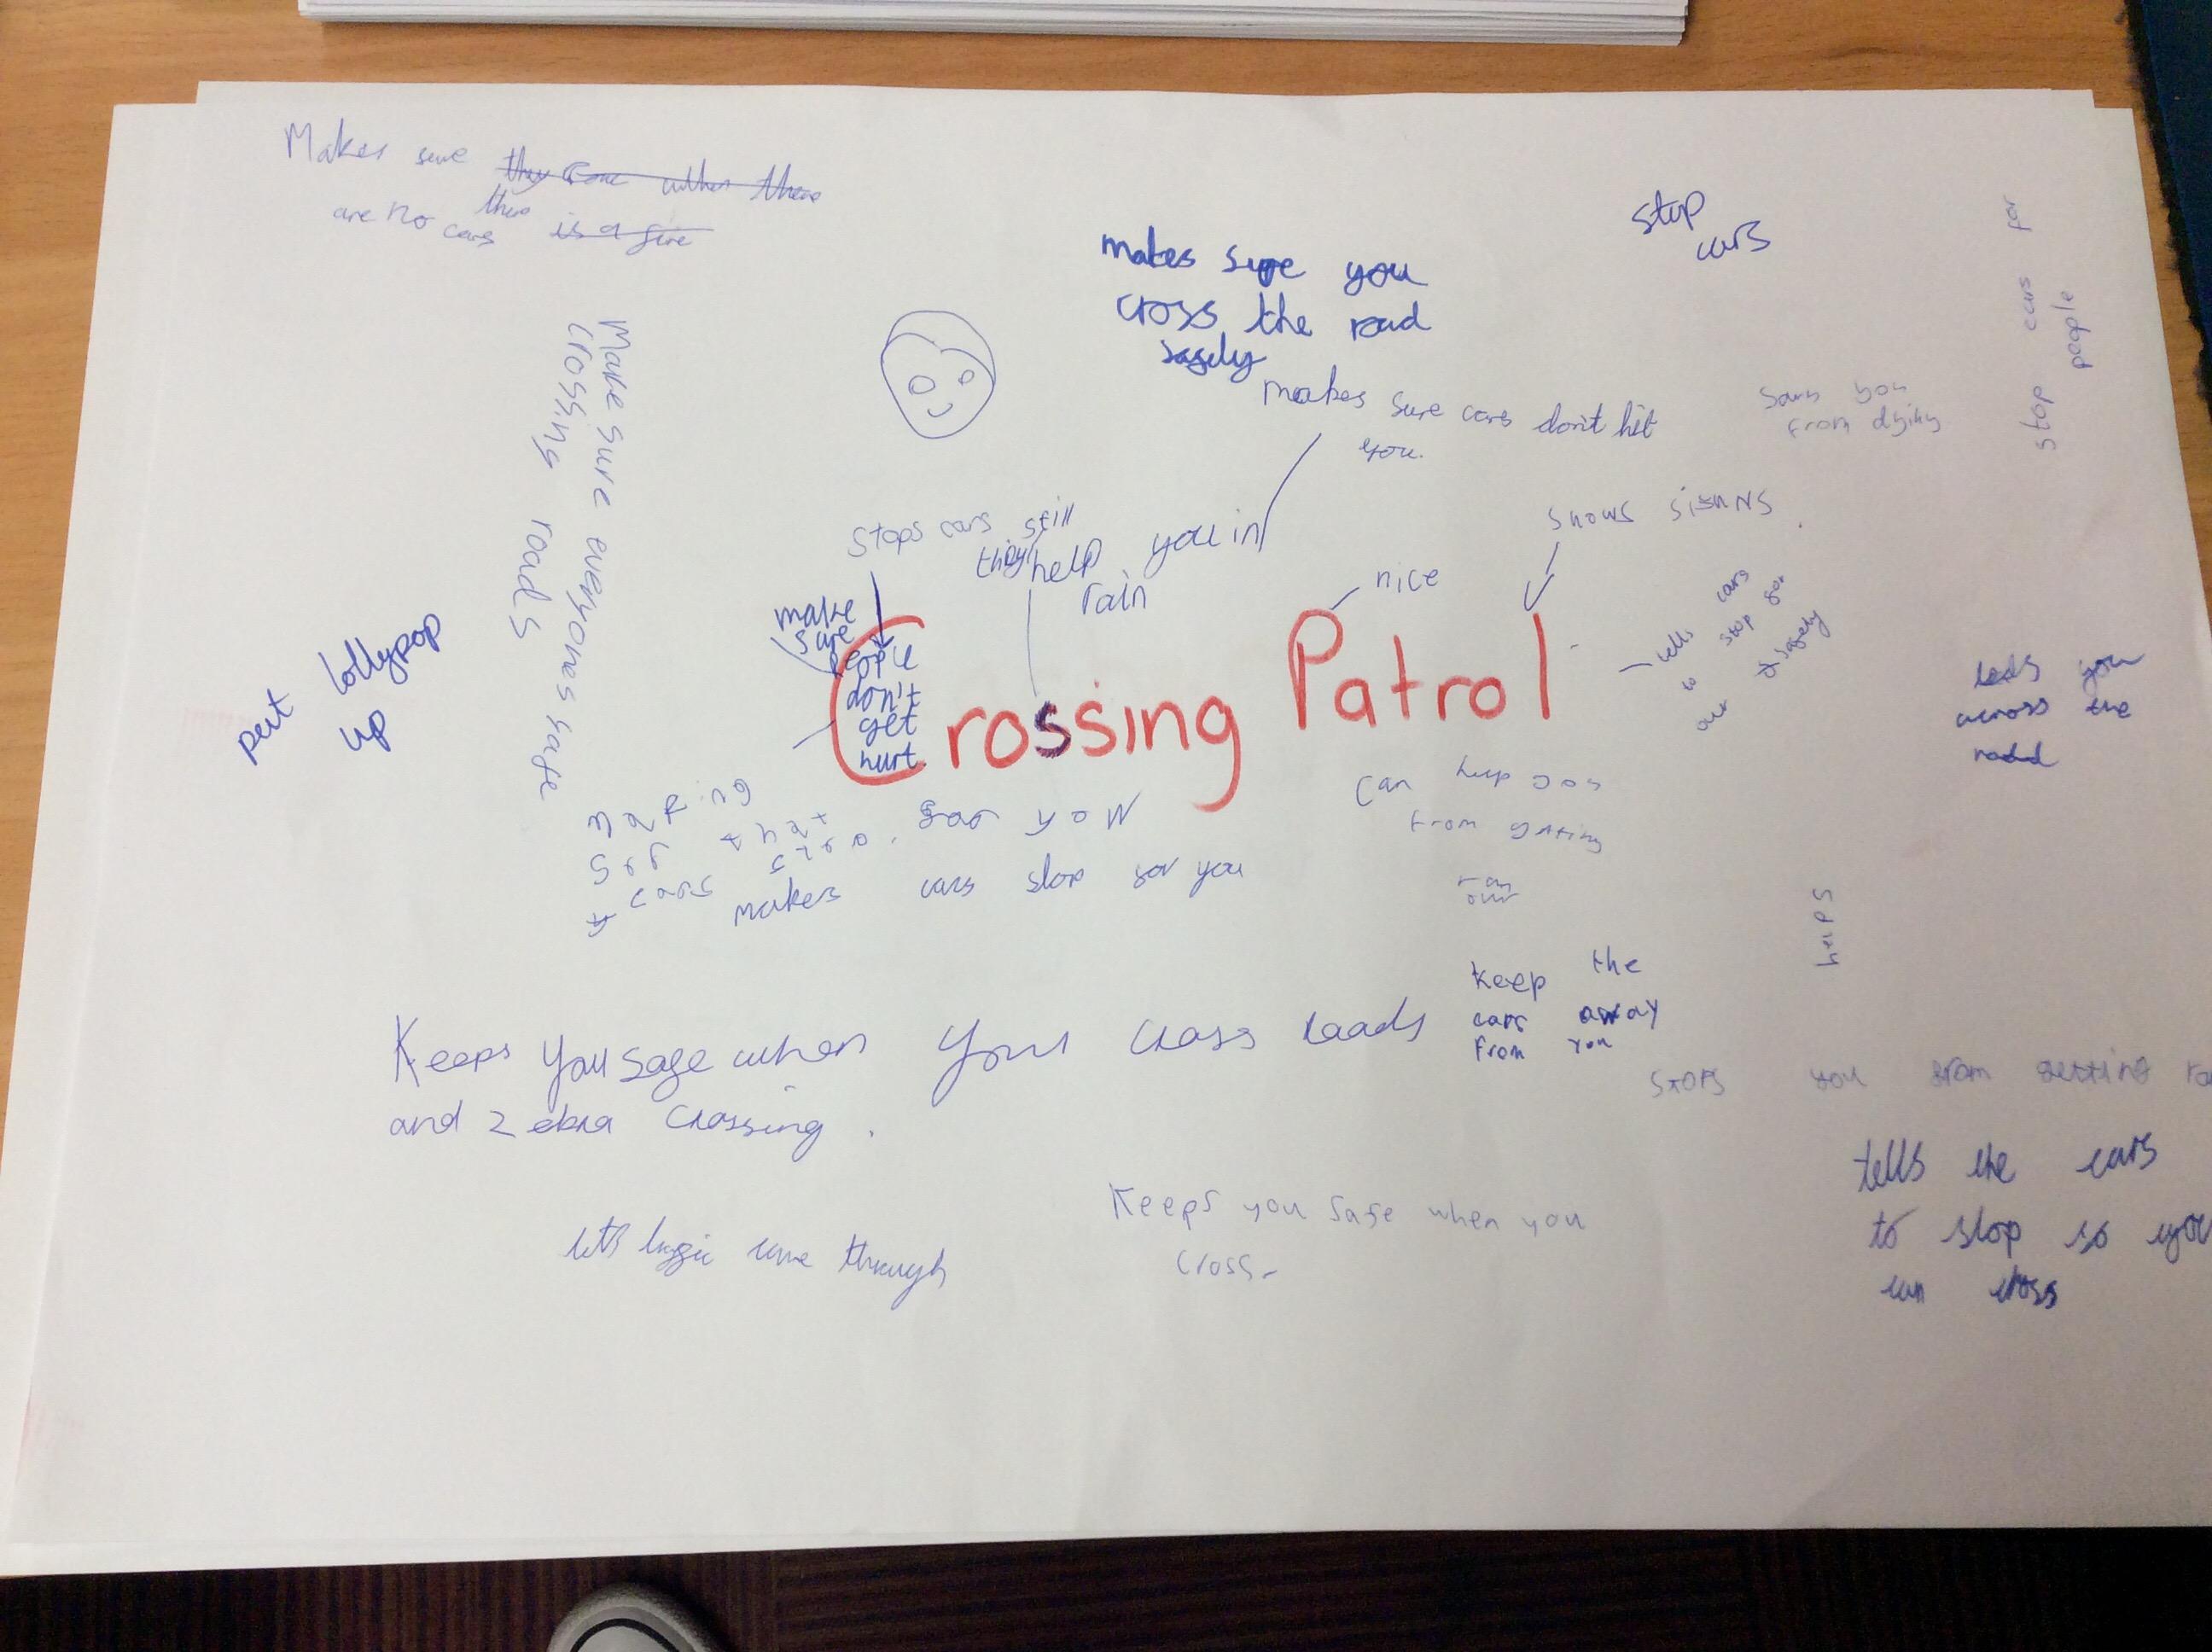 Makes sure they come when there
are no cars there is a fire
stop
cars
makes sure you
cross the road
safely
stop cars for
people
Make sure everyones safe
crossing roads
makes sure cars don't hit
you.
from dying
shows signs
stops cars
still
they help you in
rain
nice
make
sure
people
don't
get
hurt.
Crossing Patrol
tells cars
to stop for
our safety
put lollypop
up
leads you
across the
road
can help you
from getting
ran
over
for you
makes cars stop for you
helps
keep the
cars away
from you
Keeps you safe when your cross roads
and zebra crossing.
stops you from getting ra
tells the cars
to stop so you
can cross
Keeps you safe when you
cross
lets traffic come through